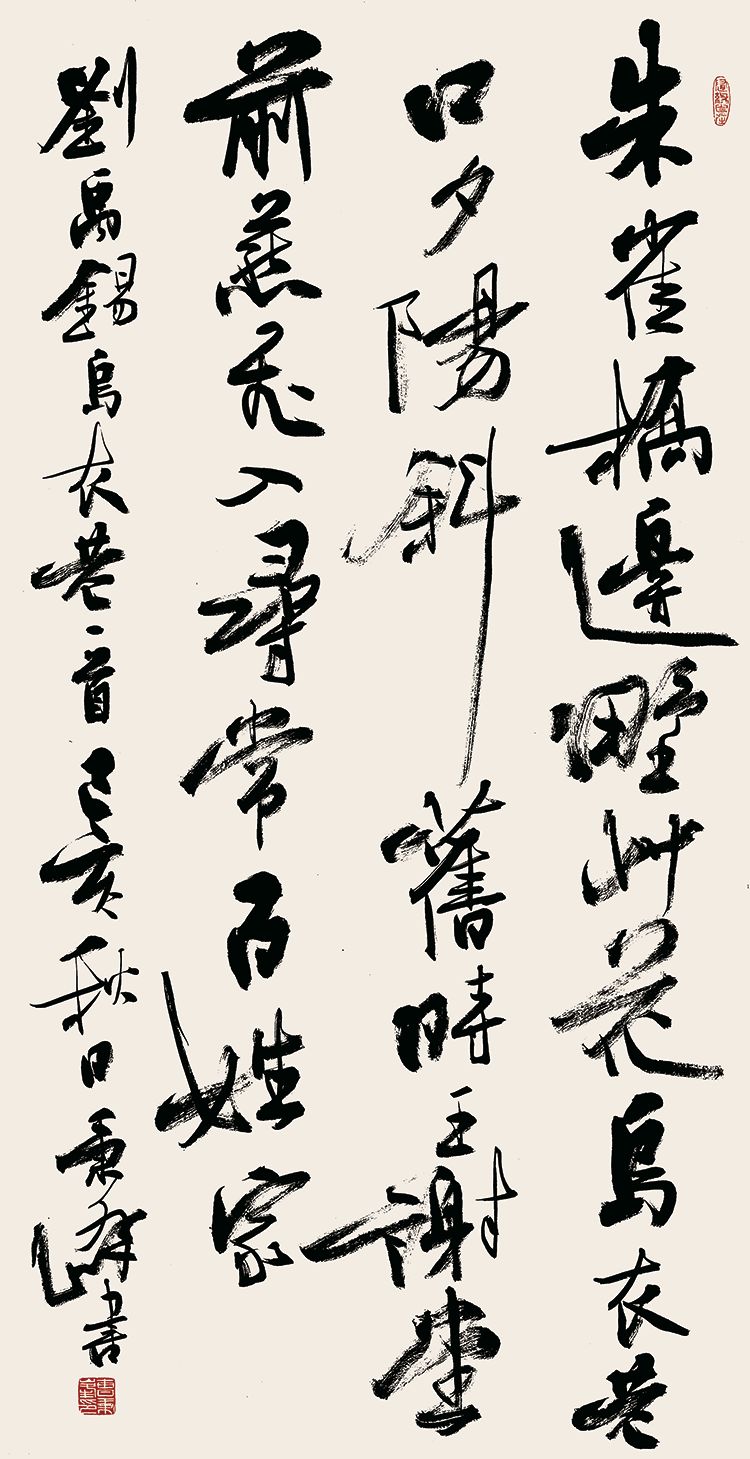 朱雀橋邊野艸花烏衣巷
口夕陽斜舊時王謝堂
前燕飛入尋常百姓家
劉禹錫烏衣巷一首己亥秋日秉峰書